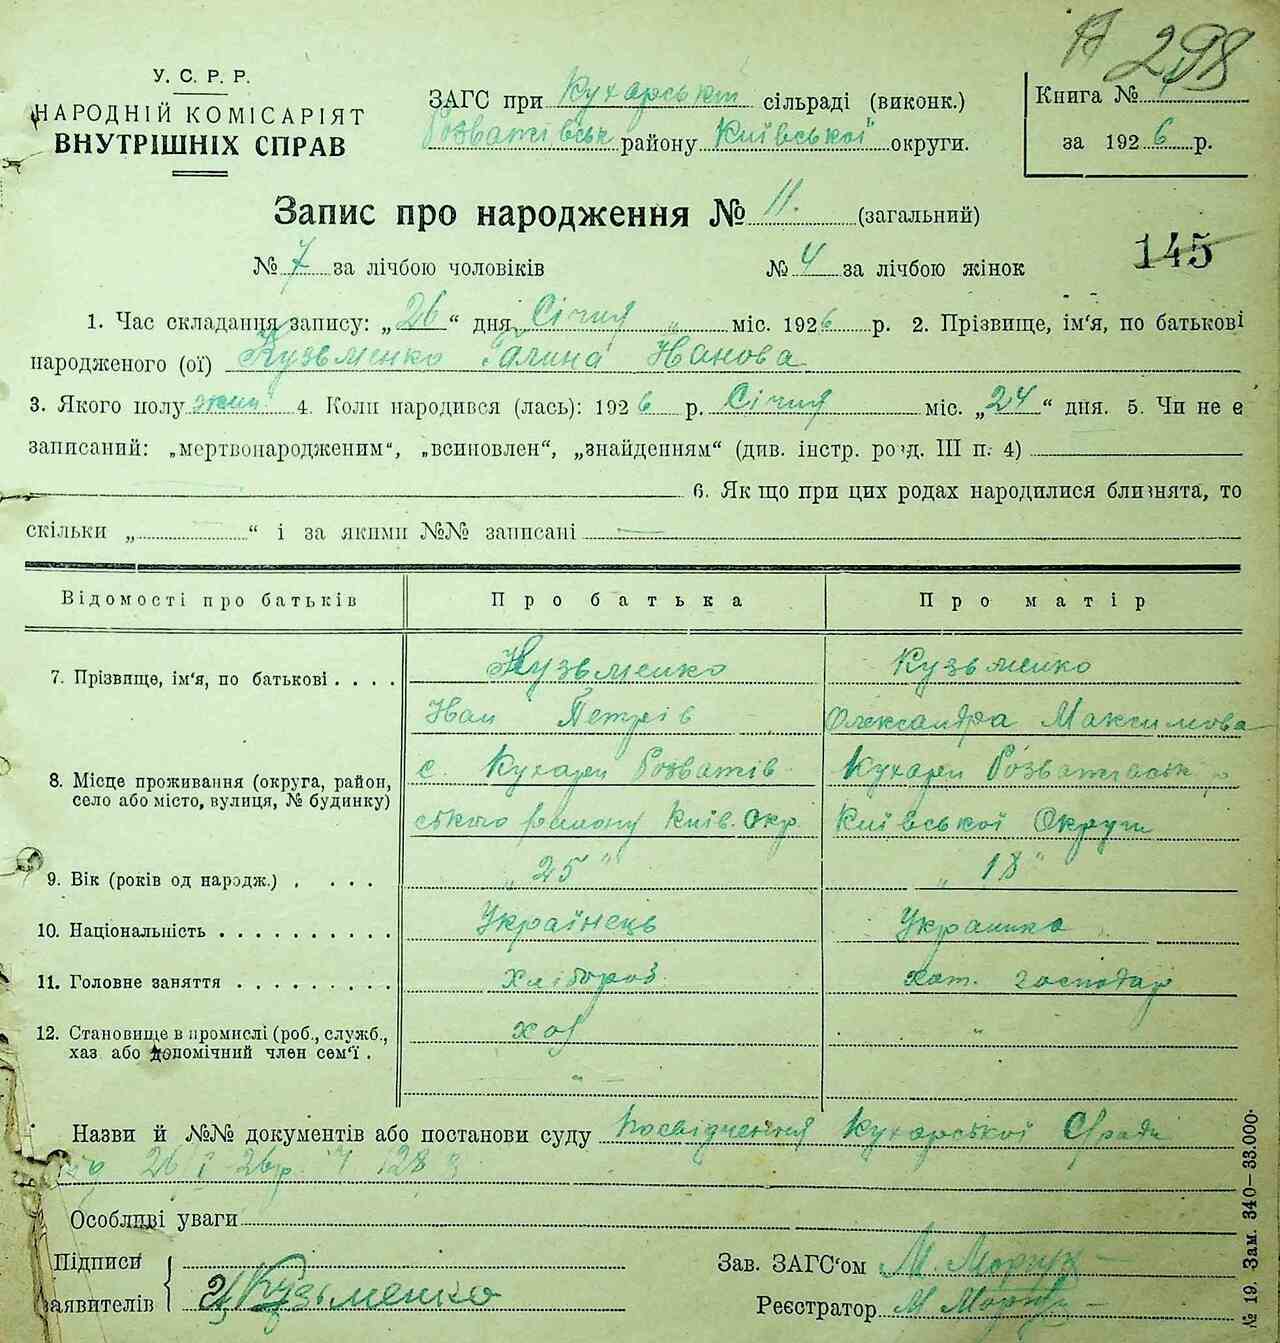 298
У. С. Р. Р.
НАРОДНІЙ КОМІСАРІЯТ
ВНУТРІШНІХ СПРАВ
ЗАГС при Кухарській сільраді (виконк.)
Розватівськ району Київської округи.
Книга №
за 1926 р.
Запис про народження № 11. (загальний)
№ 7 за лічбою чоловіків № 4 за лічбою жінок
145
1. Час складання запису: „26“ дня Січня міс. 1926 р. 2. Прізвище, ім'я, по батькові
народженого (ої) Кузьменко Галина Иванова
3. Якого полу жіні 4. Коли народився (лась): 1926 р. Січня міс. „24“ дня. 5. Чи не є
записаний: „мертвонародженим“, „всиновлен“, „знайденням“ (див. інстр. розд. III п. 4)
6. Як що при цих родах народилися близнята, то
скільки „ “ і за якими №№ записані —
Відомості про батьків Про батька Про матір
7. Прізвище, ім'я, по батькові . . . . Кузьменко Кузьменко
Иван Петрів Олександра Максимова
8. Місце проживання (округа, район,
село або місто, вулиця, № будинку)
с. Кухари Розватів- Кухари Розватівськ р
ського району Київ. Окр. Київської Округи
9. Вік (років од народж.) . . . . „25“ „18“
10. Національність . . . . . . . . . . Українець Украинка
11. Головне заняття . . . . . . . . . хлібороб хат. господар
12. Становище в промислі (роб., служб.,
хаз. або допомічний член сем'ї . хоз „
„
Назви й №№ документів або постанови суду Посвідчення Кухарської С/ради
від 26/I 26р. ч 128
Особливі уваги
Підписи
заявителів
И Кузьменко
Зав. ЗАГС'ом М.
Реєстратор М
№ 19. Зам. 340—33.000.